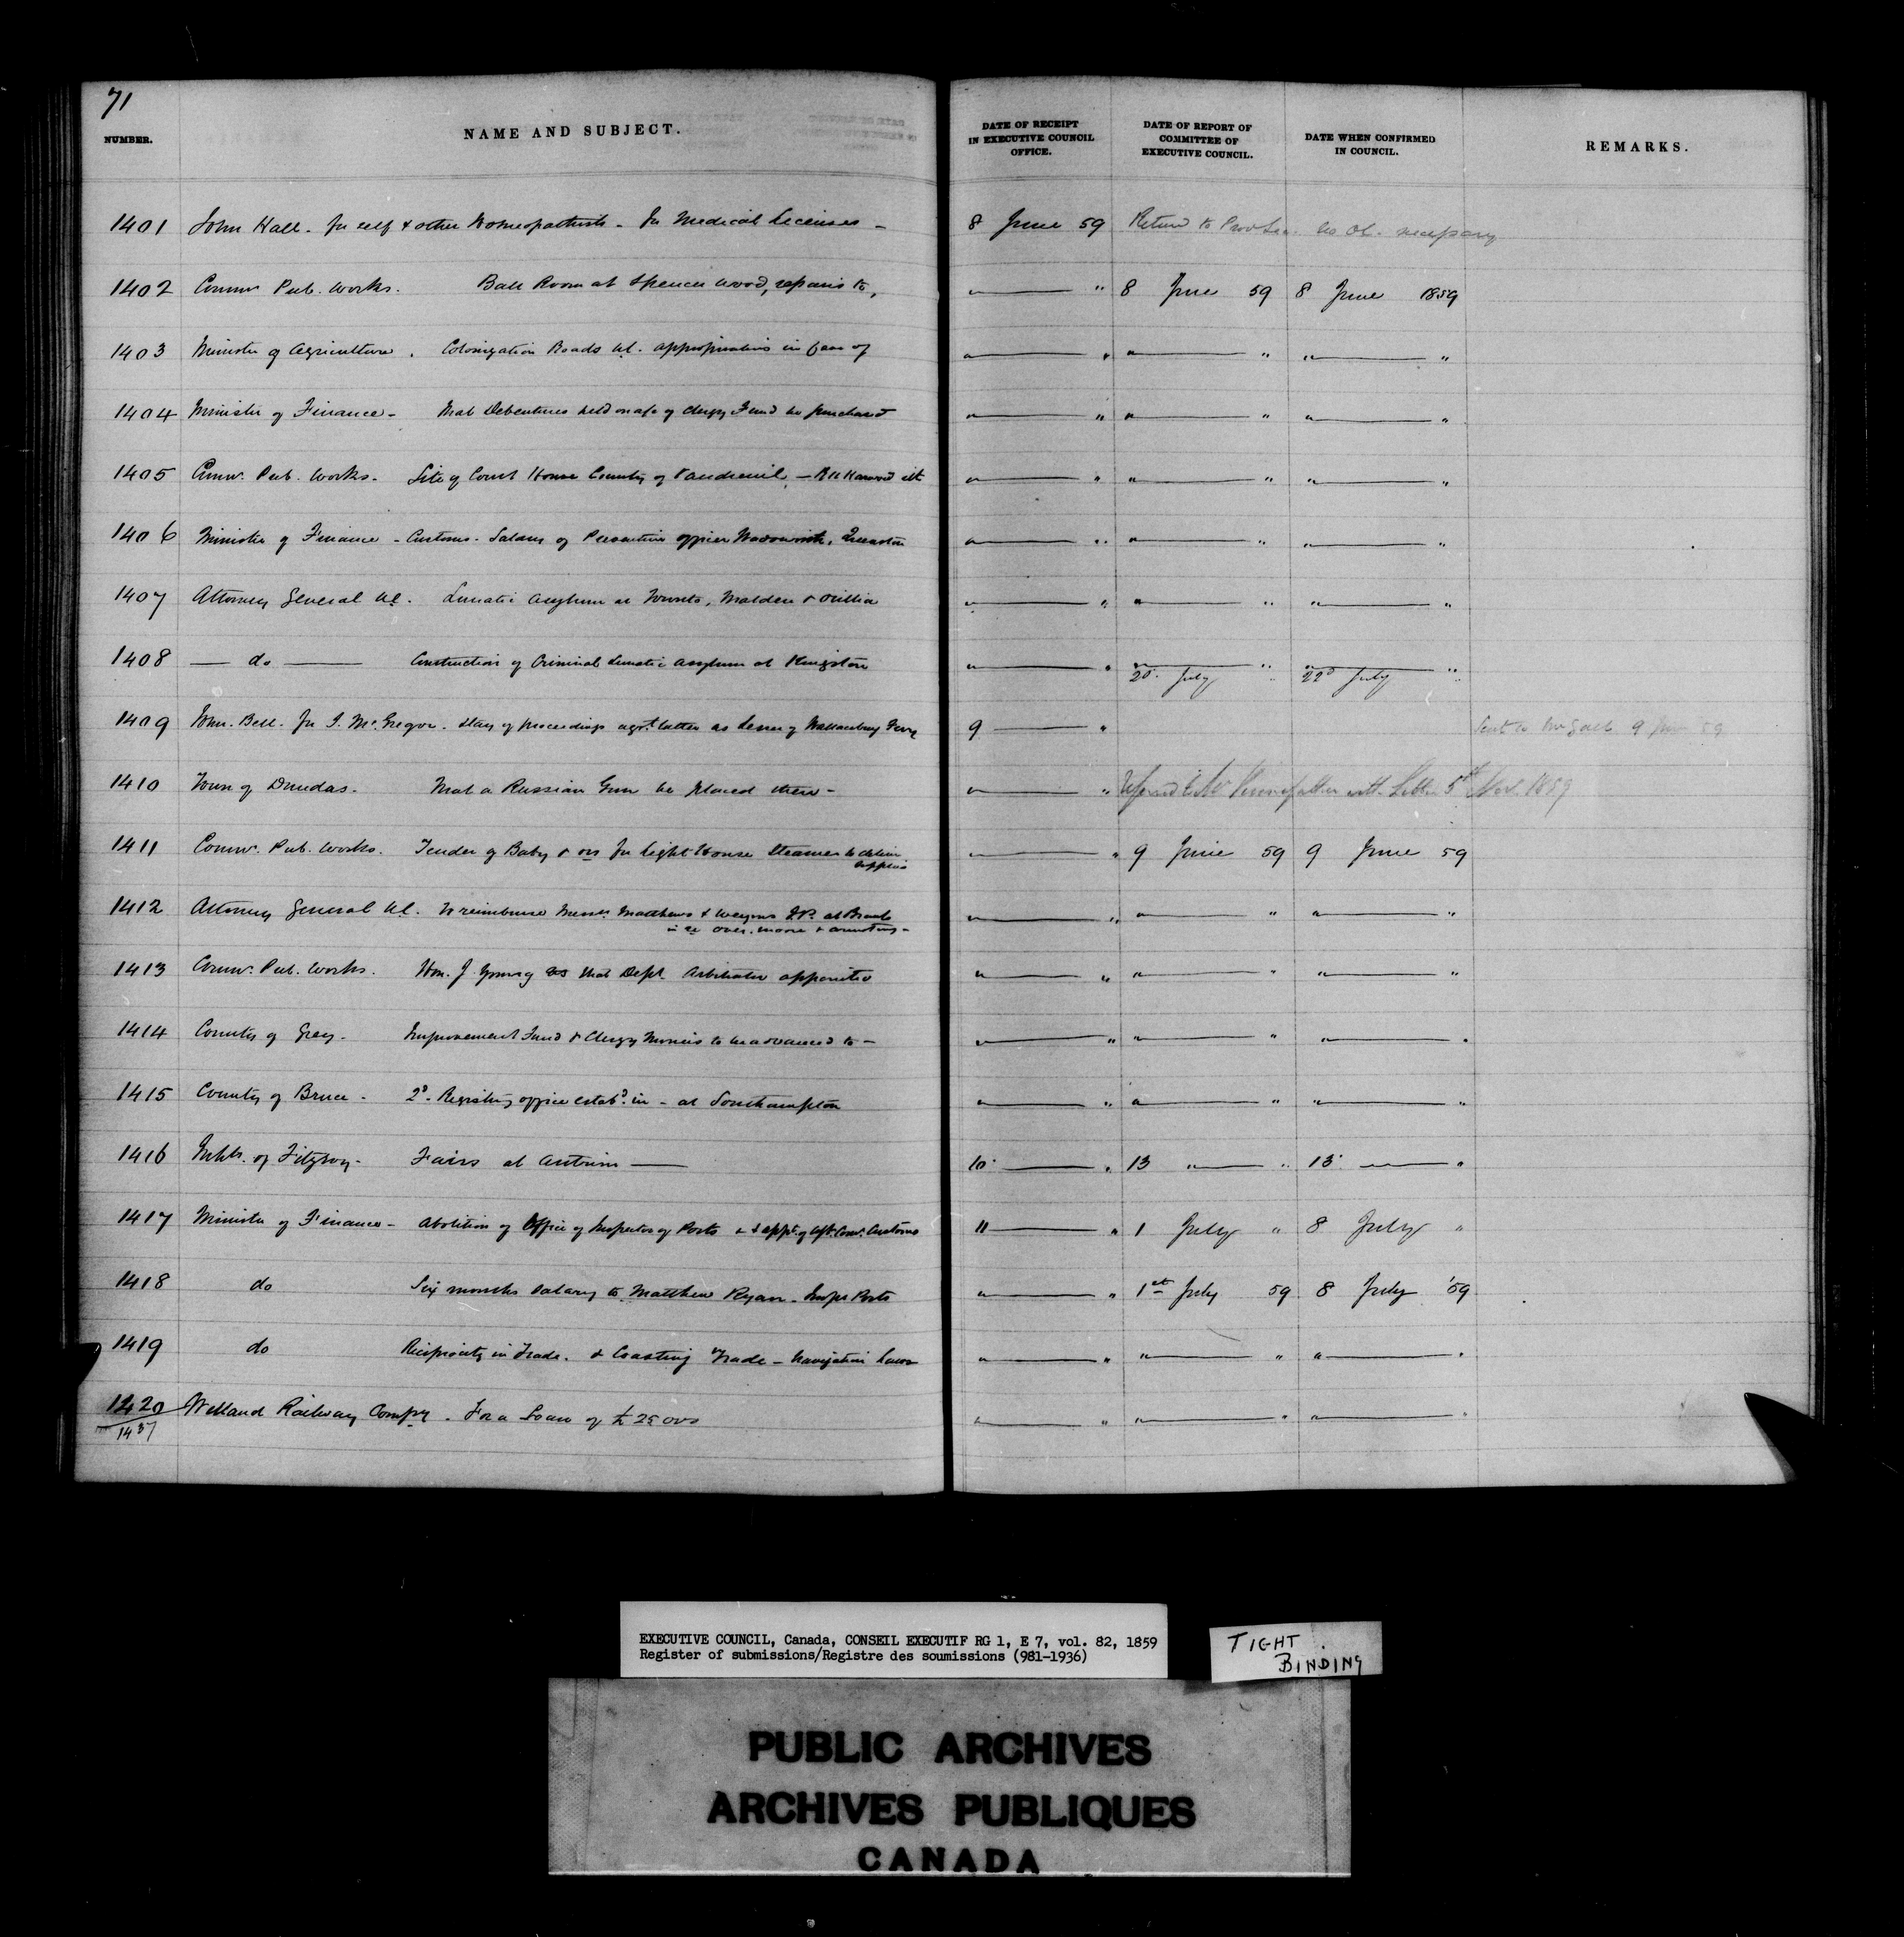 71
NUMBER. NAME AND SUBJECT. DATE OF RECEIPT IN EXECUTIVE COUNCIL OFFICE. DATE OF REPORT OF COMMITTEE OF EXECUTIVE COUNCIL. DATE WHEN CONFIRMED IN COUNCIL. REMARKS.
1401 John Hall - for self & other Homeopathists - for Medical Licenses - 8 June 59 Return to Prov Sec. no OC. necessary
1402 Commr Pub. Works. Ball Room at Spencer Wood, repairs to, " — " 8 June 59 8 June 1859
1403 Minister of Agriculture. Colonization Roads UC. appropriations in favor of " — " " — " " — "
1404 Minister of Finance - That Debentures held on a/c of Clergy Fund be purchased " — " " — " " — "
1405 Commr. Pub. Works. Site of Court House County of Vaudreuil, — Harwood " — " " — " " — "
1406 Minister of Finance - Customs - Salary of Preventive officer Wadsworth, Queenston " — " " — " " — "
1407 Attorney General UC. Lunatic Asylum at Toronto, Malden & Orillia " — " " — " " — "
1408 — do — Construction of Criminal Lunatic Asylum at Kingston " — " " — " " — "
20. July " 22d July "
1409 Bell. for McGregor. Stay of proceedings agst. latter as Lessee of Wallaceburg Ferry 9 — " Sent to Mr Galt 9 June 59
1410 Town of Dundas. That a Russian Gun be placed there - " — " Referred to Mr Pennefather with Letter 5th Nov. 1859
1411 Commr. Pub. Works. Tender of Baby & ors for Light House Steamer to deliver
supplies " — " 9 June 59 9 June 59
1412 Attorney General UC. To reimburse Messrs Matthews & JP. at
in re — " — " " — " " — "
1413 Commr. Pub. Works. Hon. J Young as that Dept. Arbitrator appointed " — " " — " " — "
1414 County of Grey - Improvement Fund & Clergy Monies to be advanced to - " — " " — " " — "
1415 County of Bruce - 2d. Registry office estabd. in - at Southampton " — " " — " " — "
1416 Inhbts. of Fitzroy - Fairs at Antrim — 10 — " 13 " — " 13 — "
1417 Minister of Finance - Abolition of Office of Inspector of Ports & appt. of Asst. Comr. Customs 11 — " 1 July " 8 July "
1418 do Six months Salary to Matthew Ryan - Inspr Ports " — " 1st July 59 8 July '59
1419 do Reciprocity in Trade. & Coasting Trade - Navigation Laws " — " " — " " — "
1420 Welland Railway Compy. For a Loan of £25000 " — " " — " " — "
1437
EXECUTIVE COUNCIL, Canada, CONSEIL EXECUTIF RG 1, E 7, vol. 82, 1859
Register of submissions/Registre des soumissions (981-1936)
TIGHT
BINDING
PUBLIC ARCHIVES
ARCHIVES PUBLIQUES
CANADA